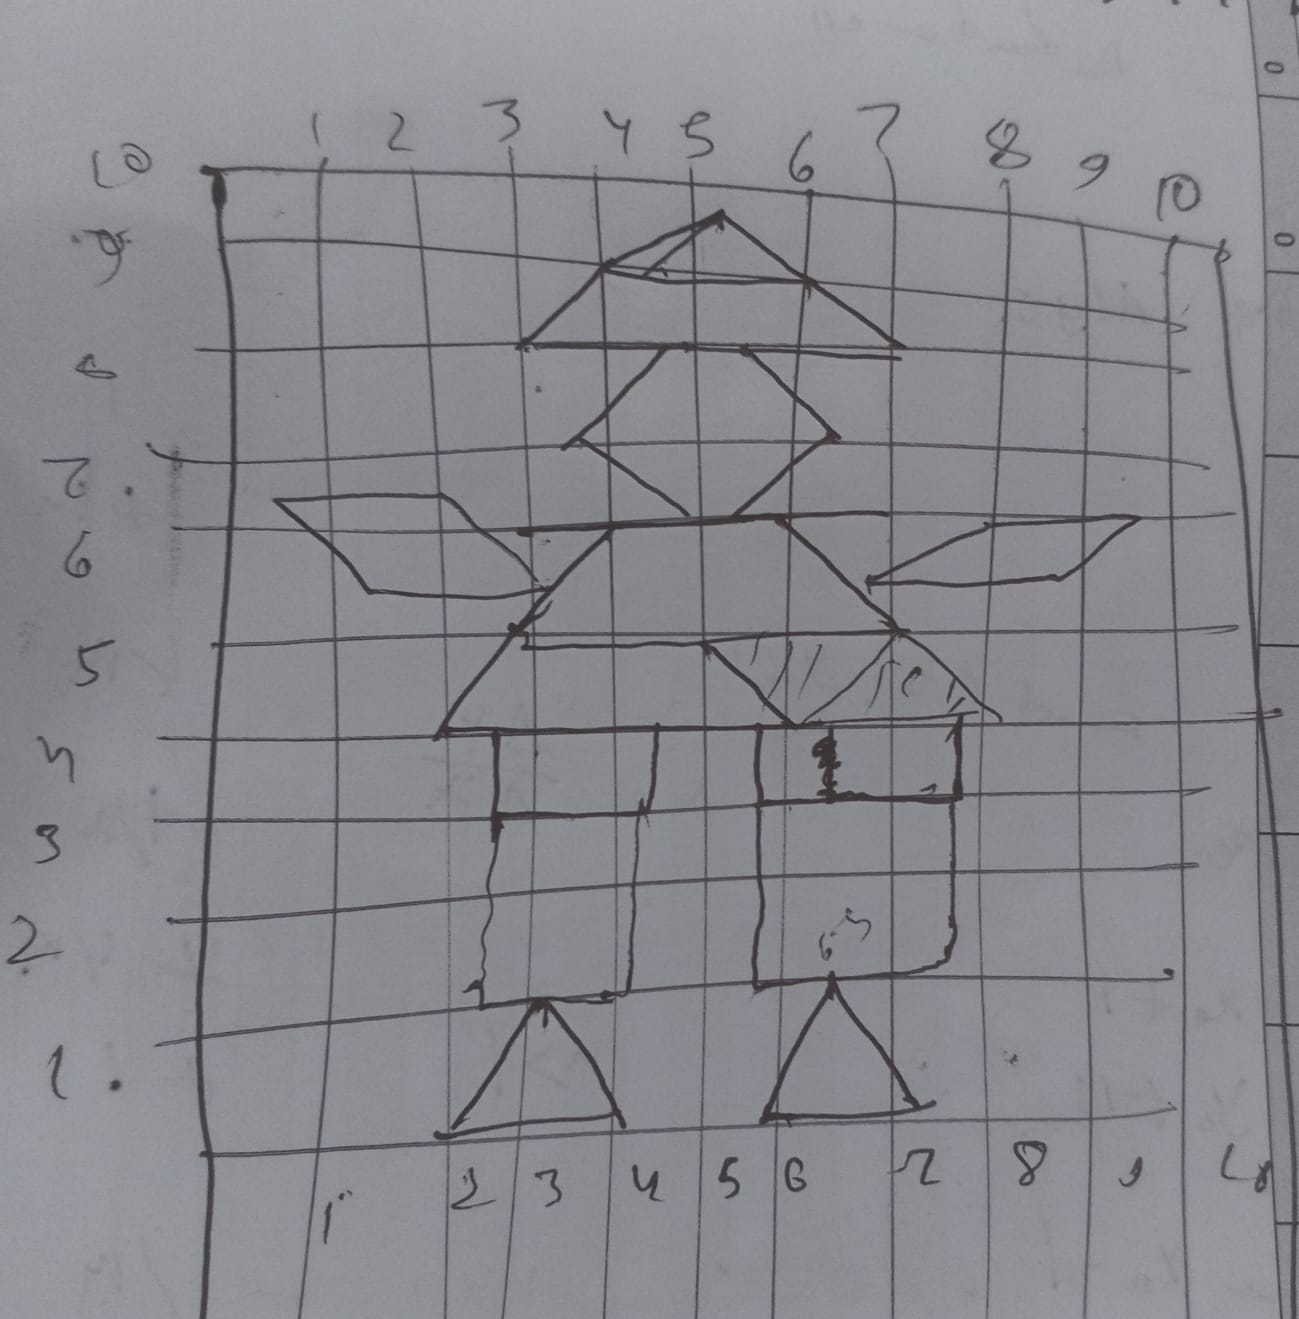 1 2 3 4 5 6 7 8 9 10
10
9
7
6
5
4
3
2
1
6.5
1 2 3 4 5 6 7 8 9 10
0
0